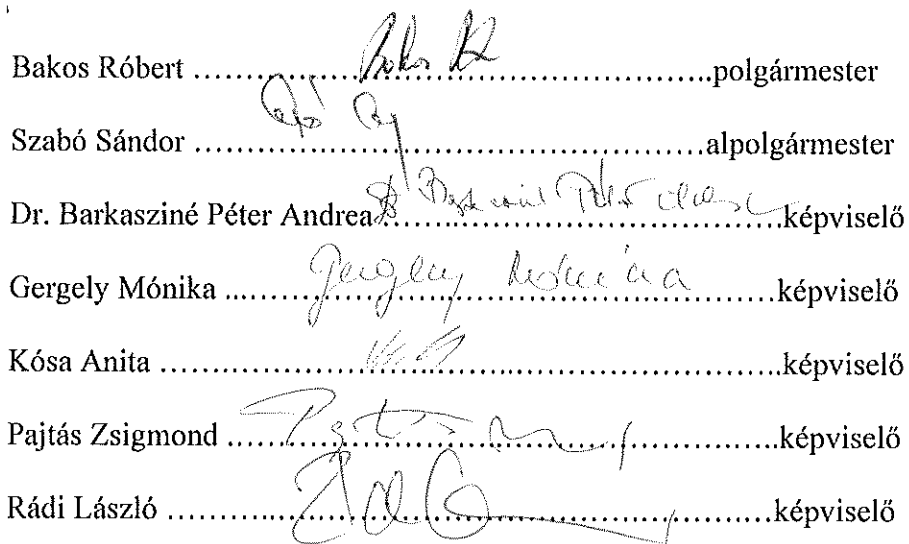 Bakos Róbert ........................................................polgármester
Szabó Sándor ........................................................alpolgármester
Dr. Barkasziné Péter Andrea........................................képviselő
Gergely Mónika ...Gergely Mónika...........................képviselő
Kósa Anita ............................................................képviselő
Pajtás Zsigmond ....................................................képviselő
Rádi László ...........................................................képviselő